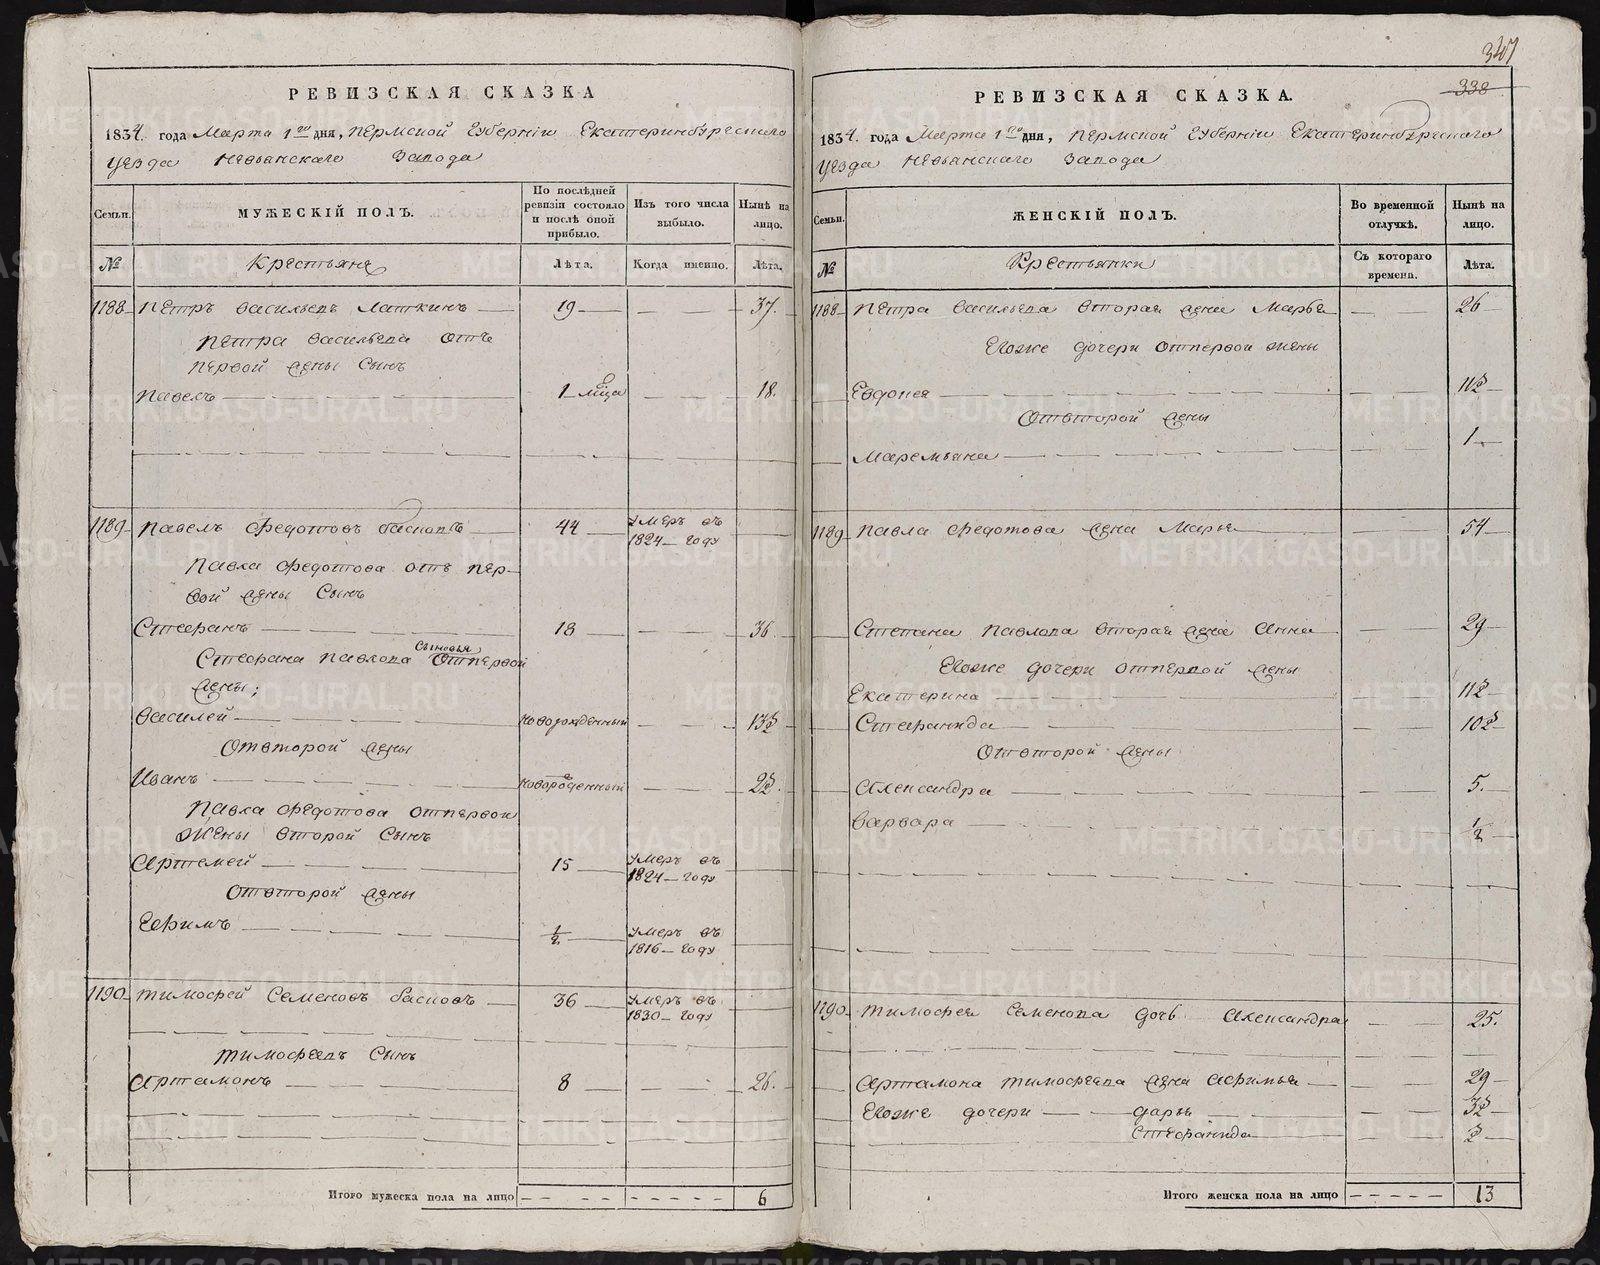 347
338
РЕВИЗСКАЯ СКАЗКА
1834. года Марта 1го дня, Пермской Губерніи Екатеринбургскаго
Уезда Невьянскаго Завода
Семьи.
МУЖЕСКІЙ ПОЛЪ.
По послѣдней ревизіи состояло и послѣ оной прибыло.
Изъ того числа выбыло.
Нынѣ на лицо.
№
Крестьяне
Лѣта.
Когда именно.
Лѣта.
1188 Петръ Васильевъ Латкинъ 19 37.
Петра Васильева отъ
первой жены сынъ
Павелъ 1 мца 18.
1189 Павелъ Федотовъ Басновъ 44 умеръ въ
1824 году
Павла Федотова отъ пер-
вой жены сынъ
Стефанъ 18 36.
Стефана Павлова сыновья отпервой
жены;
Василей новорожденный 13½
Отвторой жены
Иванъ новорожденный 2½.
Павла Федотова отпервои
жены второй сынъ
Артемей 15 умеръ въ
1824 году
Отвторой жены
Ефимъ ½ умеръ въ
1816 году
1190 Тимофей Семеновъ Басновъ 36 умеръ въ
1830 году
Тимофеевъ сынъ
Артамонъ 8 26.
Итого мужеска пола на лицо 6
РЕВИЗСКАЯ СКАЗКА.
1834. года Марта 1го дня, Пермской Губерніи Екатеринбургскаго
Уезда Невьянскаго Завода
Семьи.
ЖЕНСКІЙ ПОЛЪ.
Во временной отлучкѣ.
Нынѣ на лицо.
№
Крестьянки
Съ котораго времени.
Лѣта.
1188 Петра Васильева вторая жена Марья 26
Егоже дочери отпервои жены
Евдокея 11½
Отвторой жены
Маремьяна 1
1189 Павла Федотова жена Марья 54
Степана Павлова вторая жена Анна 29
Егоже дочери отпервой жены
Екатерина 11½
Стефанида 10½
Отвторой жены
Александра 5.
Варвара ½
1190 Тимофея Семенова дочь Александра 25.
Артамона Тимофеева жена Афимья 29
Егоже дочери Дарья 3½
Стефанида ½
Итого женска пола на лицо 13
METRIKI.GASO-URAL.RU